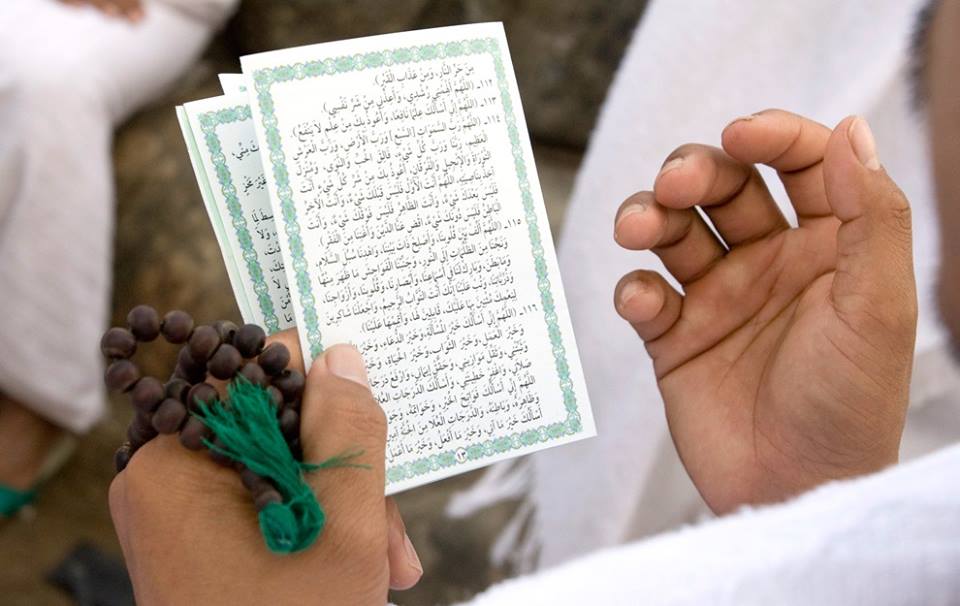 من حر النار، ومن عذاب القبر).
١١٢ـ (اللهم ألهمني رشدي، وأعذني من شر نفسي).
١١٣ـ (اللهم إني أسألك علماً نافعاً، وأعوذ بك من علم لا ينفع).
١١٤ـ (اللهم رب السموات [السبع] ورب الأرض، ورب العرش
العظيم، ربنا ورب كل شيء، فالق الحب والنوى، ومنزل
التوراة والإنجيل والفرقان، أعوذ بك من شر كل شيء أنت
آخذ بناصيته، اللهم أنت الأول فليس قبلك شيء، وأنت الآخر
فليس بعدك شيء، وأنت الظاهر فليس فوقك شيء، وأنت
الباطن فليس دونك شيء، اقض عنا الدين وأغننا من الفقر).
١١٥ـ (اللهم ألف بين قلوبنا، وأصلح ذات بيننا، واهدنا سبل السلام،
ونجنا من الظلمات إلى النور، وجنبنا الفواحش ما ظهر منها
وما بطن، وبارك لنا في أسماعنا، وأبصارنا، وقلوبنا، وأزواجنا،
وذرياتنا، وتب علينا إنك أنت التواب الرحيم، واجعلنا شاكرين
لنعمك مثنين بها عليك، قابلين لها، وأتممها علينا).
١١٦ـ (اللهم إني أسألك خير المسألة، وخير الدعاء،
وخير العمل، وخير الثواب، وخير الحياة،
وثبتني، وثقل موازيني، وحقق إيماني، وارفع
صلاتي، واغفر خطيئتي، وأسألك الدرجات العلا
اللهم إني أسألك فواتح الخير، وخواتمه،
وظاهره، وباطنه، والدرجات العلا من
أسألك خير ما آتي، وخير ما أفعل، وخير ما أعمل
١٣